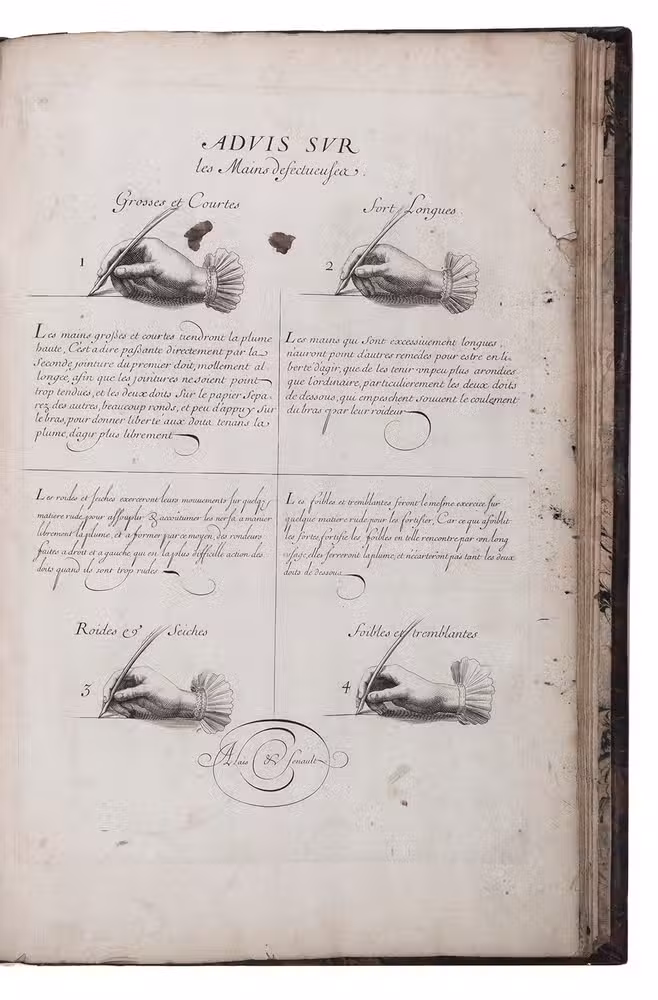 ADVIS SVR
les Mains defectueuses.
Grosses et Courtes
1
Les mains großes et courtes tiendront la plume
haute, C'est a dire paßante directement par la
Seconde jointure du premier doit, mollement al
longée, afin que les jointures ne soient point
trop tendues, et les deux doits Sur le papier Sepa
rez des autres, beaucoup ronds, et peu d'appuy Sur
le bras, pour donner liberte aux doits tenans la
plume, d'agir plus librement
Fort Longues
2
Les mains qui Sont excessiuement longues,
n'auront point d'autres remedes pour estre en li
berte d'agir, que de les tenir vn peu plus arondies
que l'ordinaire, particulierement les deux doits
de dessous, qui empeschent souuent le coulement
du bras par leur roideur
Les roides et seiches exerceront leurs mouuements sur quelq;
matiere rude, pour assouplir & accoutumer les nerfs a manier
librement la plume, et a former par ce moyen, des rondeurs
faites a droit et a gauche, qui en la plus difficille action des
doits quand ils sont trop rudes
Les foibles et tremblantes feront le mesme exercice sur
quelque matiere rude pour les fortifier, Car ce qui afoiblit
les fortes, fortifie les foibles en telle rencontre par vn long
vsage, elles serreront la plume, et n'écarteront pas tant les deux
doits de dessous
Roides & Seiches
3
Foibles et tremblantes
4
Alais & Senault